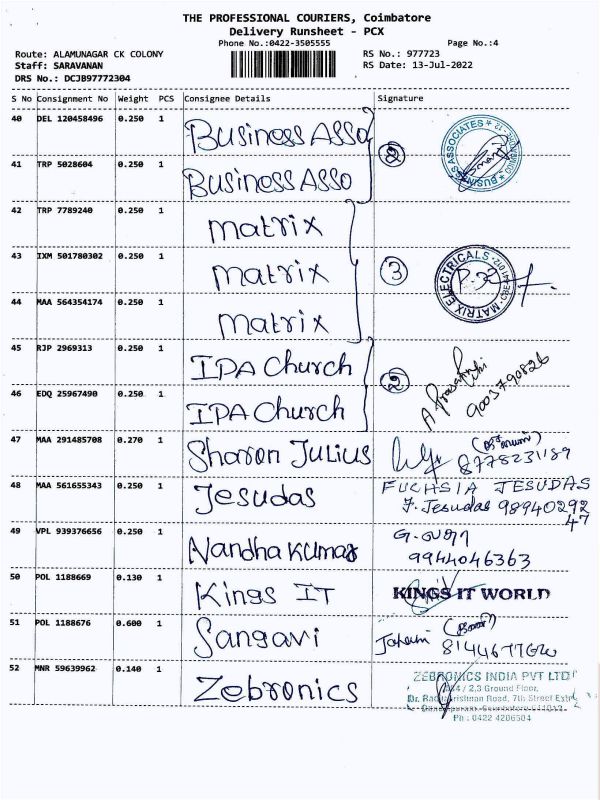 THE PROFESSIONAL COURIERS, Coimbatore
Delivery Runsheet - PCX
Phone No.:0422-3505555
Page No.:4
Route: ALAMUNAGAR CK COLONY
RS No.: 977723
Staff: SARAVANAN
RS Date: 13-Jul-2022
DRS No.: DCJB97772304
S No Consignment No Weight PCS Consignee Details Signature
40 DEL 120458496 0.250 1 Business Asso
41 TRP 5028604 0.250 1 Business Asso
2
BUSINESS ASSOCIATES
42 TRP 7789240 0.250 1 Matrix
43 IXM 501780302 0.250 1 Matrix
3
MATRIX ELECTRICALS
44 MAA 564354174 0.250 1 Matrix
45 RJP 2969313 0.250 1 IPA Church
46 EDQ 25967490 0.250 1 IPA Church
2
9003790826
47 MAA 291485708 0.270 1 Sharon Julius
8778231189
48 MAA 561655343 0.250 1 Jesudas
FUCHSIA JESUDAS
F. Jesudas 98940292
47
49 VPL 939376656 0.250 1 Nandha Kumar
9944046363
50 POL 1188669 0.130 1 Kings IT
KINGS IT WORLD
51 POL 1188676 0.600 1 Sangavi
52 MNR 59639962 0.140 1 Zebronics
ZEBRONICS INDIA PVT LTD
2,3 Ground Floor,
Road, 7th Street Extn
Ph : 0422 4206504